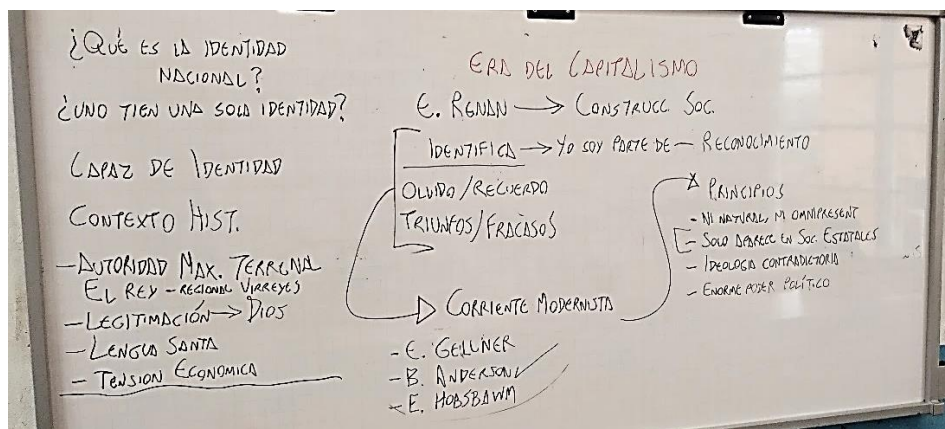 ¿QUÉ ES LA IDENTIDAD
NACIONAL?
¿UNO TIEN UNA SOLA IDENTIDAD?
CAPAZ DE IDENTIDAD
CONTEXTO HIST.
- AUTORIDAD MAX. TERRENAL
EL REY - REGIONAL VIRREYES
- LEGITIMACIÓN → DIOS
- LENGUA SANTA
- TENSION ECONOMICA
ERA DEL CAPITALISMO
E. RENAN → CONSTRUCC. SOC.
IDENTIFICA → YO SOY PARTE DE - RECONOCIMIENTO
OLVIDO/RECUERDO
TRIUNFOS/FRACASOS
CORRIENTE MODERNISTA
- E. GELLNER
- B. ANDERSON
- E. HOBSBAWM
PRINCIPIOS
- NI NATURAL, NI OMNIPRESENT
- SOLO APARECE EN SOC. ESTATALES
- IDEOLOGIA CONTRADICTORIA
- ENORME PODER POLÍTICO